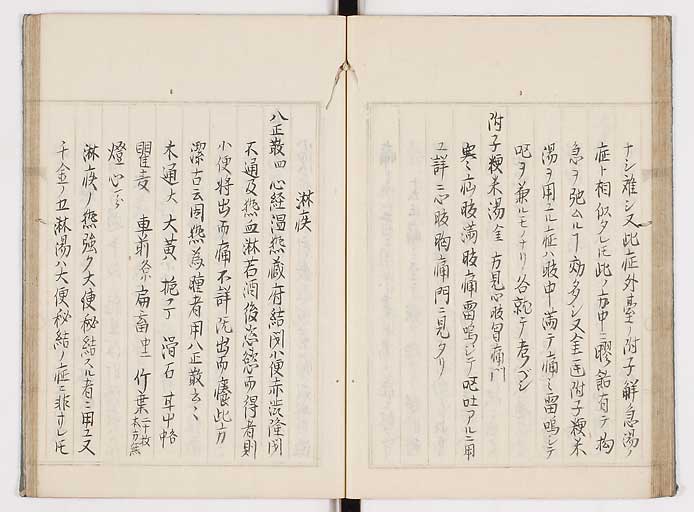 ナシ難シ又此症外臺ノ附子解急湯ノ
症ト相似タレ𪜈此ノ方中ニ膠飴有テ拘
急ヲ弛ムルヿ効多シ又金匱附子粳米
湯ヲ用ユル症ハ腹中満テ痛ミ雷鳴シテ
嘔ヲ兼ルモノナリ各就テ考フベシ
附子粳米湯金 方見心腹胃痛門
寒疝腹満腹痛雷鳴シテ嘔吐アルニ用
ユ詳ニ心腹胸痛門ニ見タリ
淋疾
八正散四 心経温熱蔵府結閉小便赤渋隆閉
不通及熱血淋若酒後恣慾而得者則
小便将出而痛不詳既出而癢此方
潔古云因熱為腫者用八正散云々
木通大 大黄小 梔子 滑石 甘艸
瞿麦 車前 扁畜中 竹葉二十枚本方無
燈心
淋疾ノ熱強ク大便秘結スル者ニ用ユ又
千金ノ五淋湯ハ大便秘結ノ症ニ非サレ𪜈